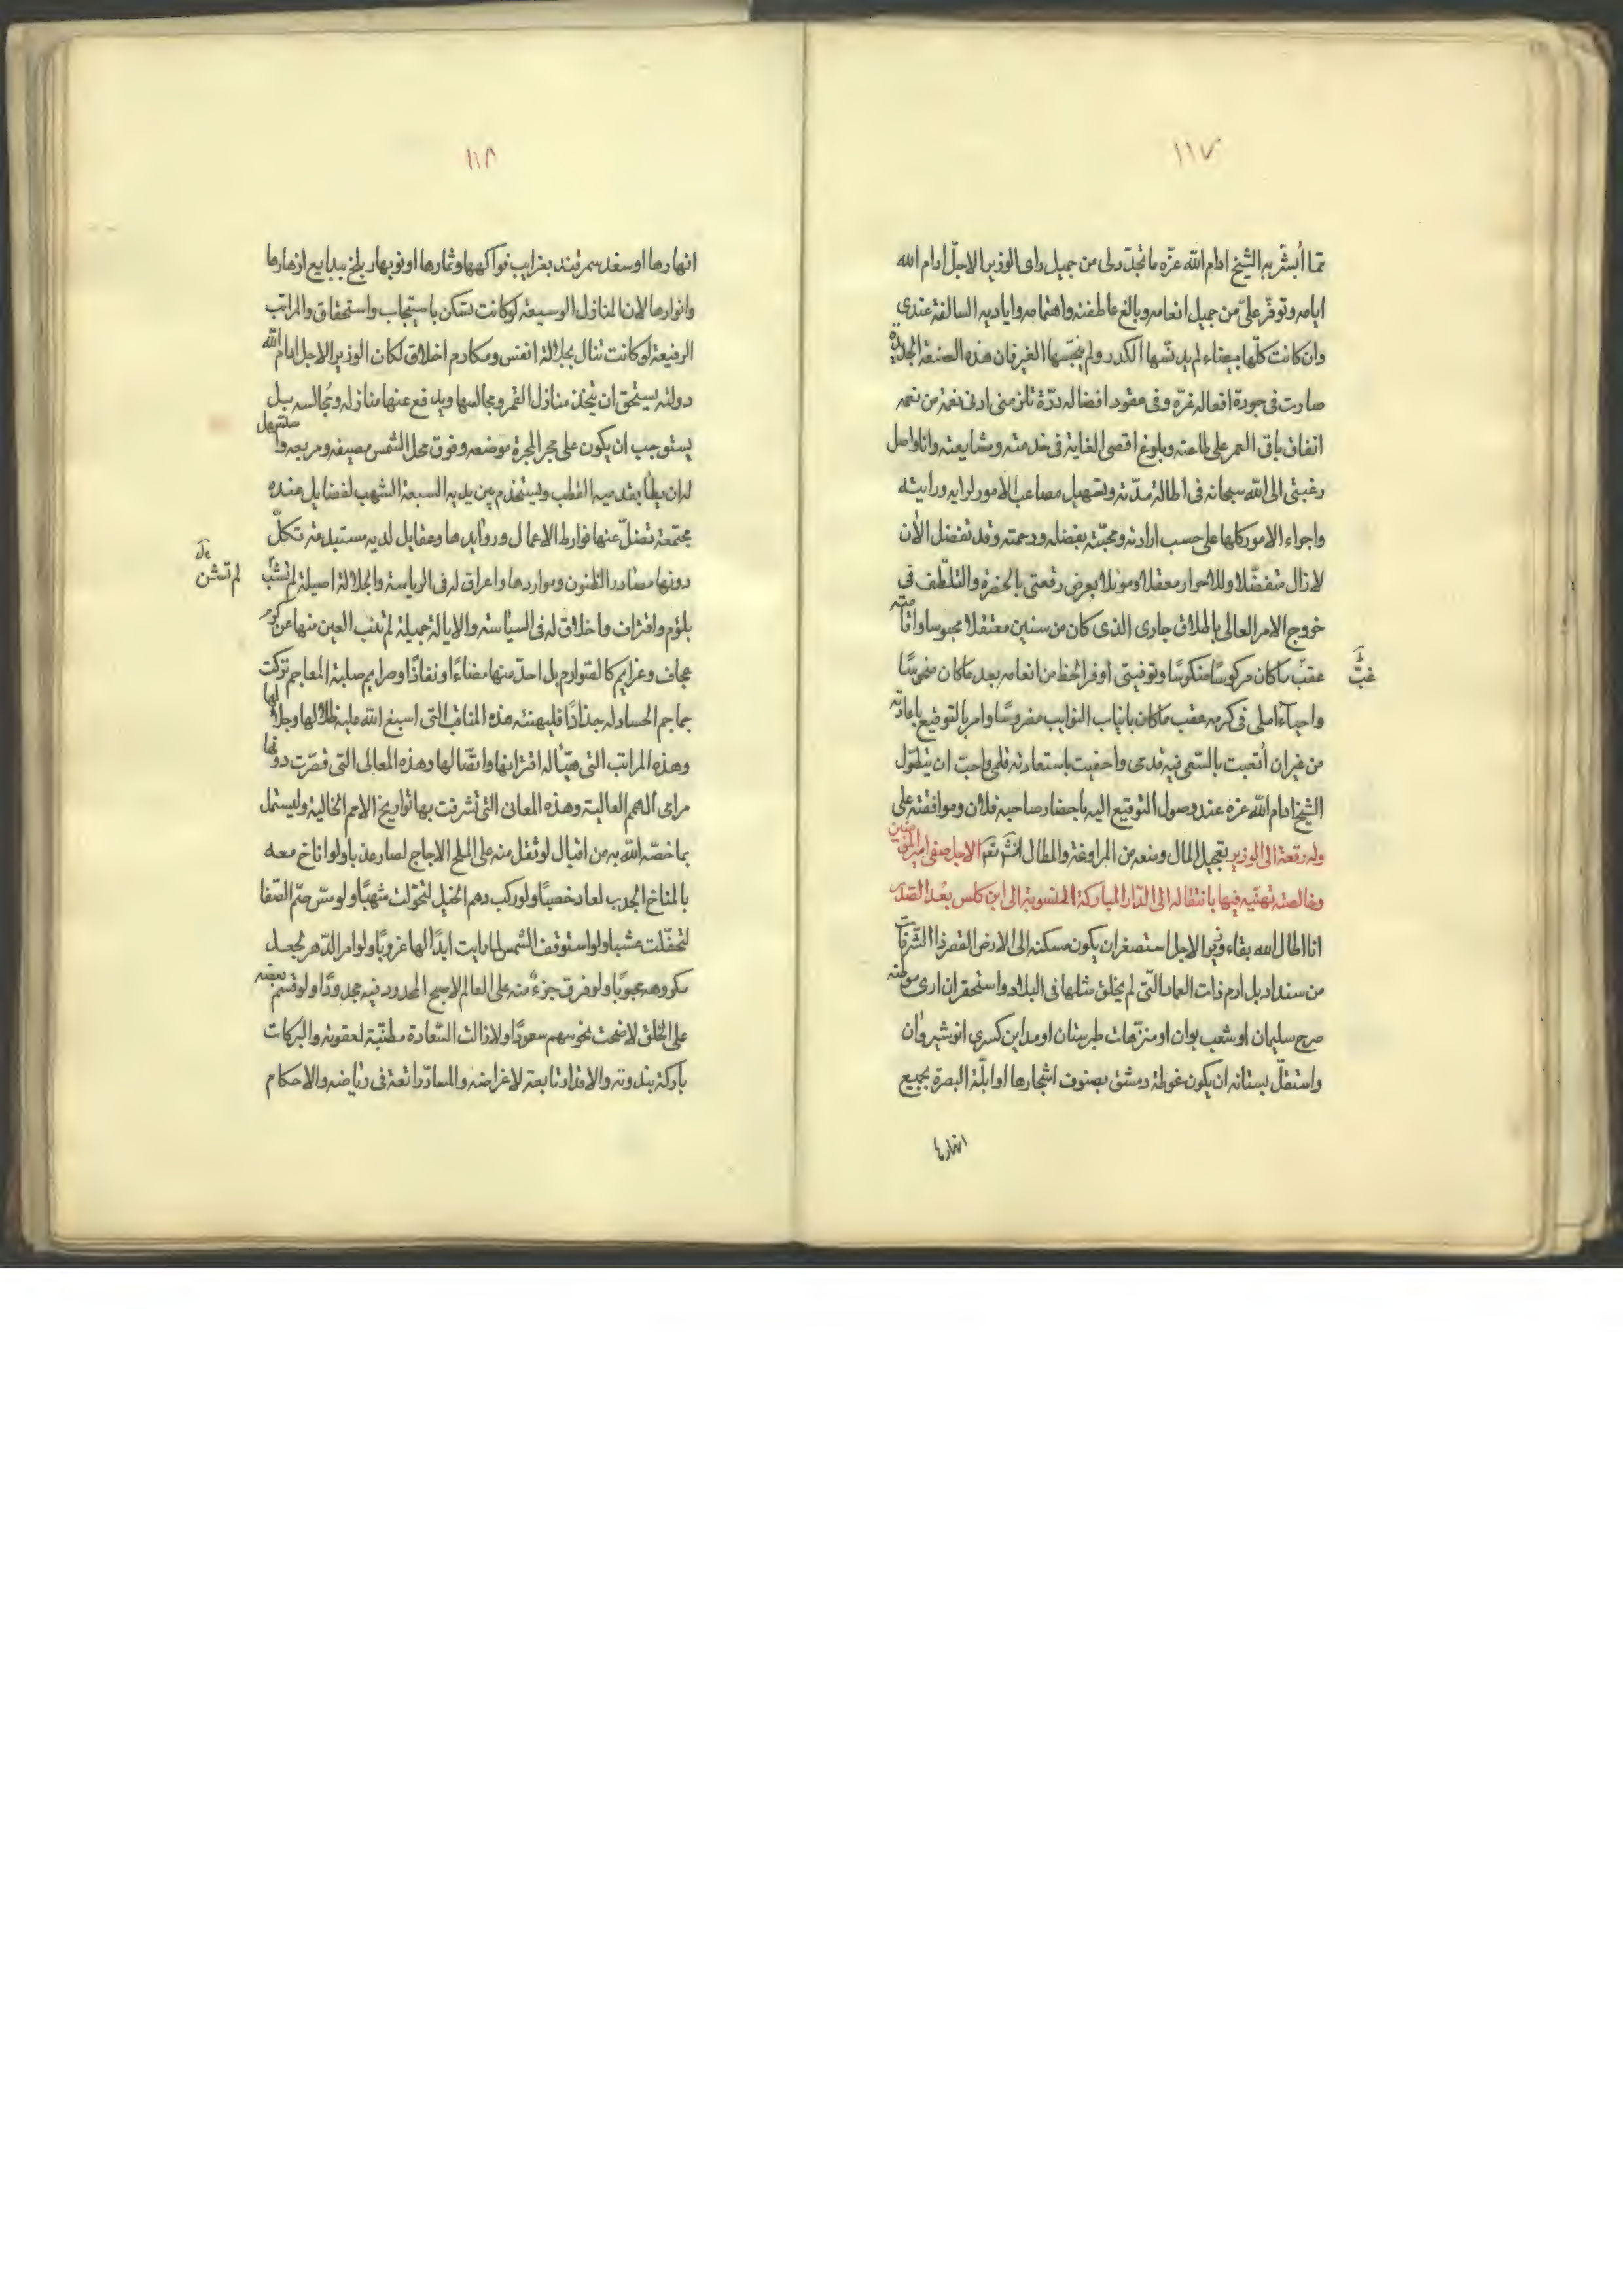 ١١٧
مما أبشر به الشيخ ادام الله عزه ما تجدد لى من جميل راى الوزير الاجل ادام الله
ايامه وتوفر على من جميل انعامه وبالغ عاطفته واهتمامه واياديه السالفة عندى
وان كانت كلها بيضاء لم يدنسها الكدر ولم ينجسها الغير فان هذه الصنعة الجديدة
صارت فى جودة افعاله غرة وفى عقود افضاله درة تلزمنى ادنى نغمة من نعمه
انفاق باقى العمر على طاعته وبلوغ اقصى الغاية فى خدمته ومشايعته وانا واصل
رغبتى الى الله سبحانه فى اطالة مدته وتسهيل مصاعب الامور لرايه ورايته
واجراء الامور كلها على حسب ارادته ومحبته بفضله ورحمته وقد تفضل الأن
لازال متفضلا وللاحرار معقلا وموئلا بعرض رقعتى بالحضرة والتلطف فى
خروج الامر العالى باطلاق جارى الذى كان من سنين معتقلا محبوسا واقامته
عقب ماكان مركوسا منكوسا وتوفيتى اوفر الحظ من انعامه بعد ماكان منحوسا
غب
واحياء املى فى كرمه عقب ماكان بانياب النوايب مفروسا وامر بالتوقيع باعادته
من غير ان أتعبت بالسعى فيه قدمى واحفيت باستعادته قلمى واحب ان يتطول
الشيخ ادام الله عزه عند وصول التوقيع اليه باحضار صاحبه فلان وموافقته على
تعجيل المال ومنعه من المراوغة والمطال وله رقعة الى الوزير الاجل صفى امير المؤمنين
وخالصته تهنيه فيها بانتقاله الى الدار المباركة المنسوبة الى ابن كلس بعد الصدر
انا اطال الله بقاء وزير الاجل استصغر ان يكون مسكنه الى الارض القصر ذا الشرفات
من سنداد بل ارم ذات العماد التى لم يخلق مثلها فى البلاد واستحقر ان ارى موطنه
صرح سليمان او شعب بوان او منزهات طبرستان او مداين كسرى انوشيروان
واستقل بستانه ان يكون غوطة دمشق بصنوف اشجارها او ابلة البصرة بجميع
انهارها
١١٨
انهارها او سغد سمرقند بغرايب فواكهها وثمارها او نوبهار بلخ ببدايع ازهارها
وانوارها لان المنازل الوسيعة لو كانت تسكن باستيجاب واستحقاق والمراتب
الرفيعة لو كانت تنال بجلالة انفس ومكارم اخلاق لكان الوزير الاجل ادام الله
دولته يستحق ان يتخذ منازل القمر ومجالسها ويدفع عنها منازله ومجالسه بل
يستوجب ان يكون على مجر المجرة موضعه وفوق محل الشمس مصيفه ومربعه
له ان يطأ بقدميه القطب ويستخدم بين يديه السبعة الشهب لفضايل عنده
مجتمعة تضل عنها فوارط الاعمال وروايدها وعقايل لديه مستبدعة تكل
دونها مصادر الظنون ومواردها واعراق له فى الرياسة والجلالة اصيلة لم تشب
لم تشن
بلؤم واقتراف واخلاق له فى السياسة والايالة جميلة لم تنب العين منها عن كرم
مجاف وعزايم كالصوارم بل احد منها مضاءا ونفاذا وصرايم صلبة المعاجم تركت
جماجم الحساد له جذاذا فليهنئه هذه المناقب التى اسبغ الله عليه ظلالها وجلالها
وهذه المراتب التى هيأ له اقترانها واتصالها وهذه المعالى التى قصرت دونها
مرامى الهمم العالية وهذه المعانى التى تشرفت بها تواريخ الامم الخالية وليستمل
بما خصه الله به من اقبال لو تفل منه على الملح الاجاج لصار عذبا ولو اناخ معه
بالمناخ الجدب لعاد خصبا ولو ركب دهم الخيل لتحولت شهبا ولو مس صم الصفا
لتحفلت عشبا ولو استوقف الشمس لما رايت ابدا لها غروبا ولو امر الدهر لجعل
مكروهه محبوبا ولو فرق جزء منه على العالم لاصبح المحدود فيه مجدودا ولو قسم بعضه
على الخلق لاضحت نحوسهم سعودا ولا زالت السعادة مطنبة لعقوته والبركات
باركة بندوته والاقدار تابعة لاغراضه والمسار راتعة فى رياضه والاحكام